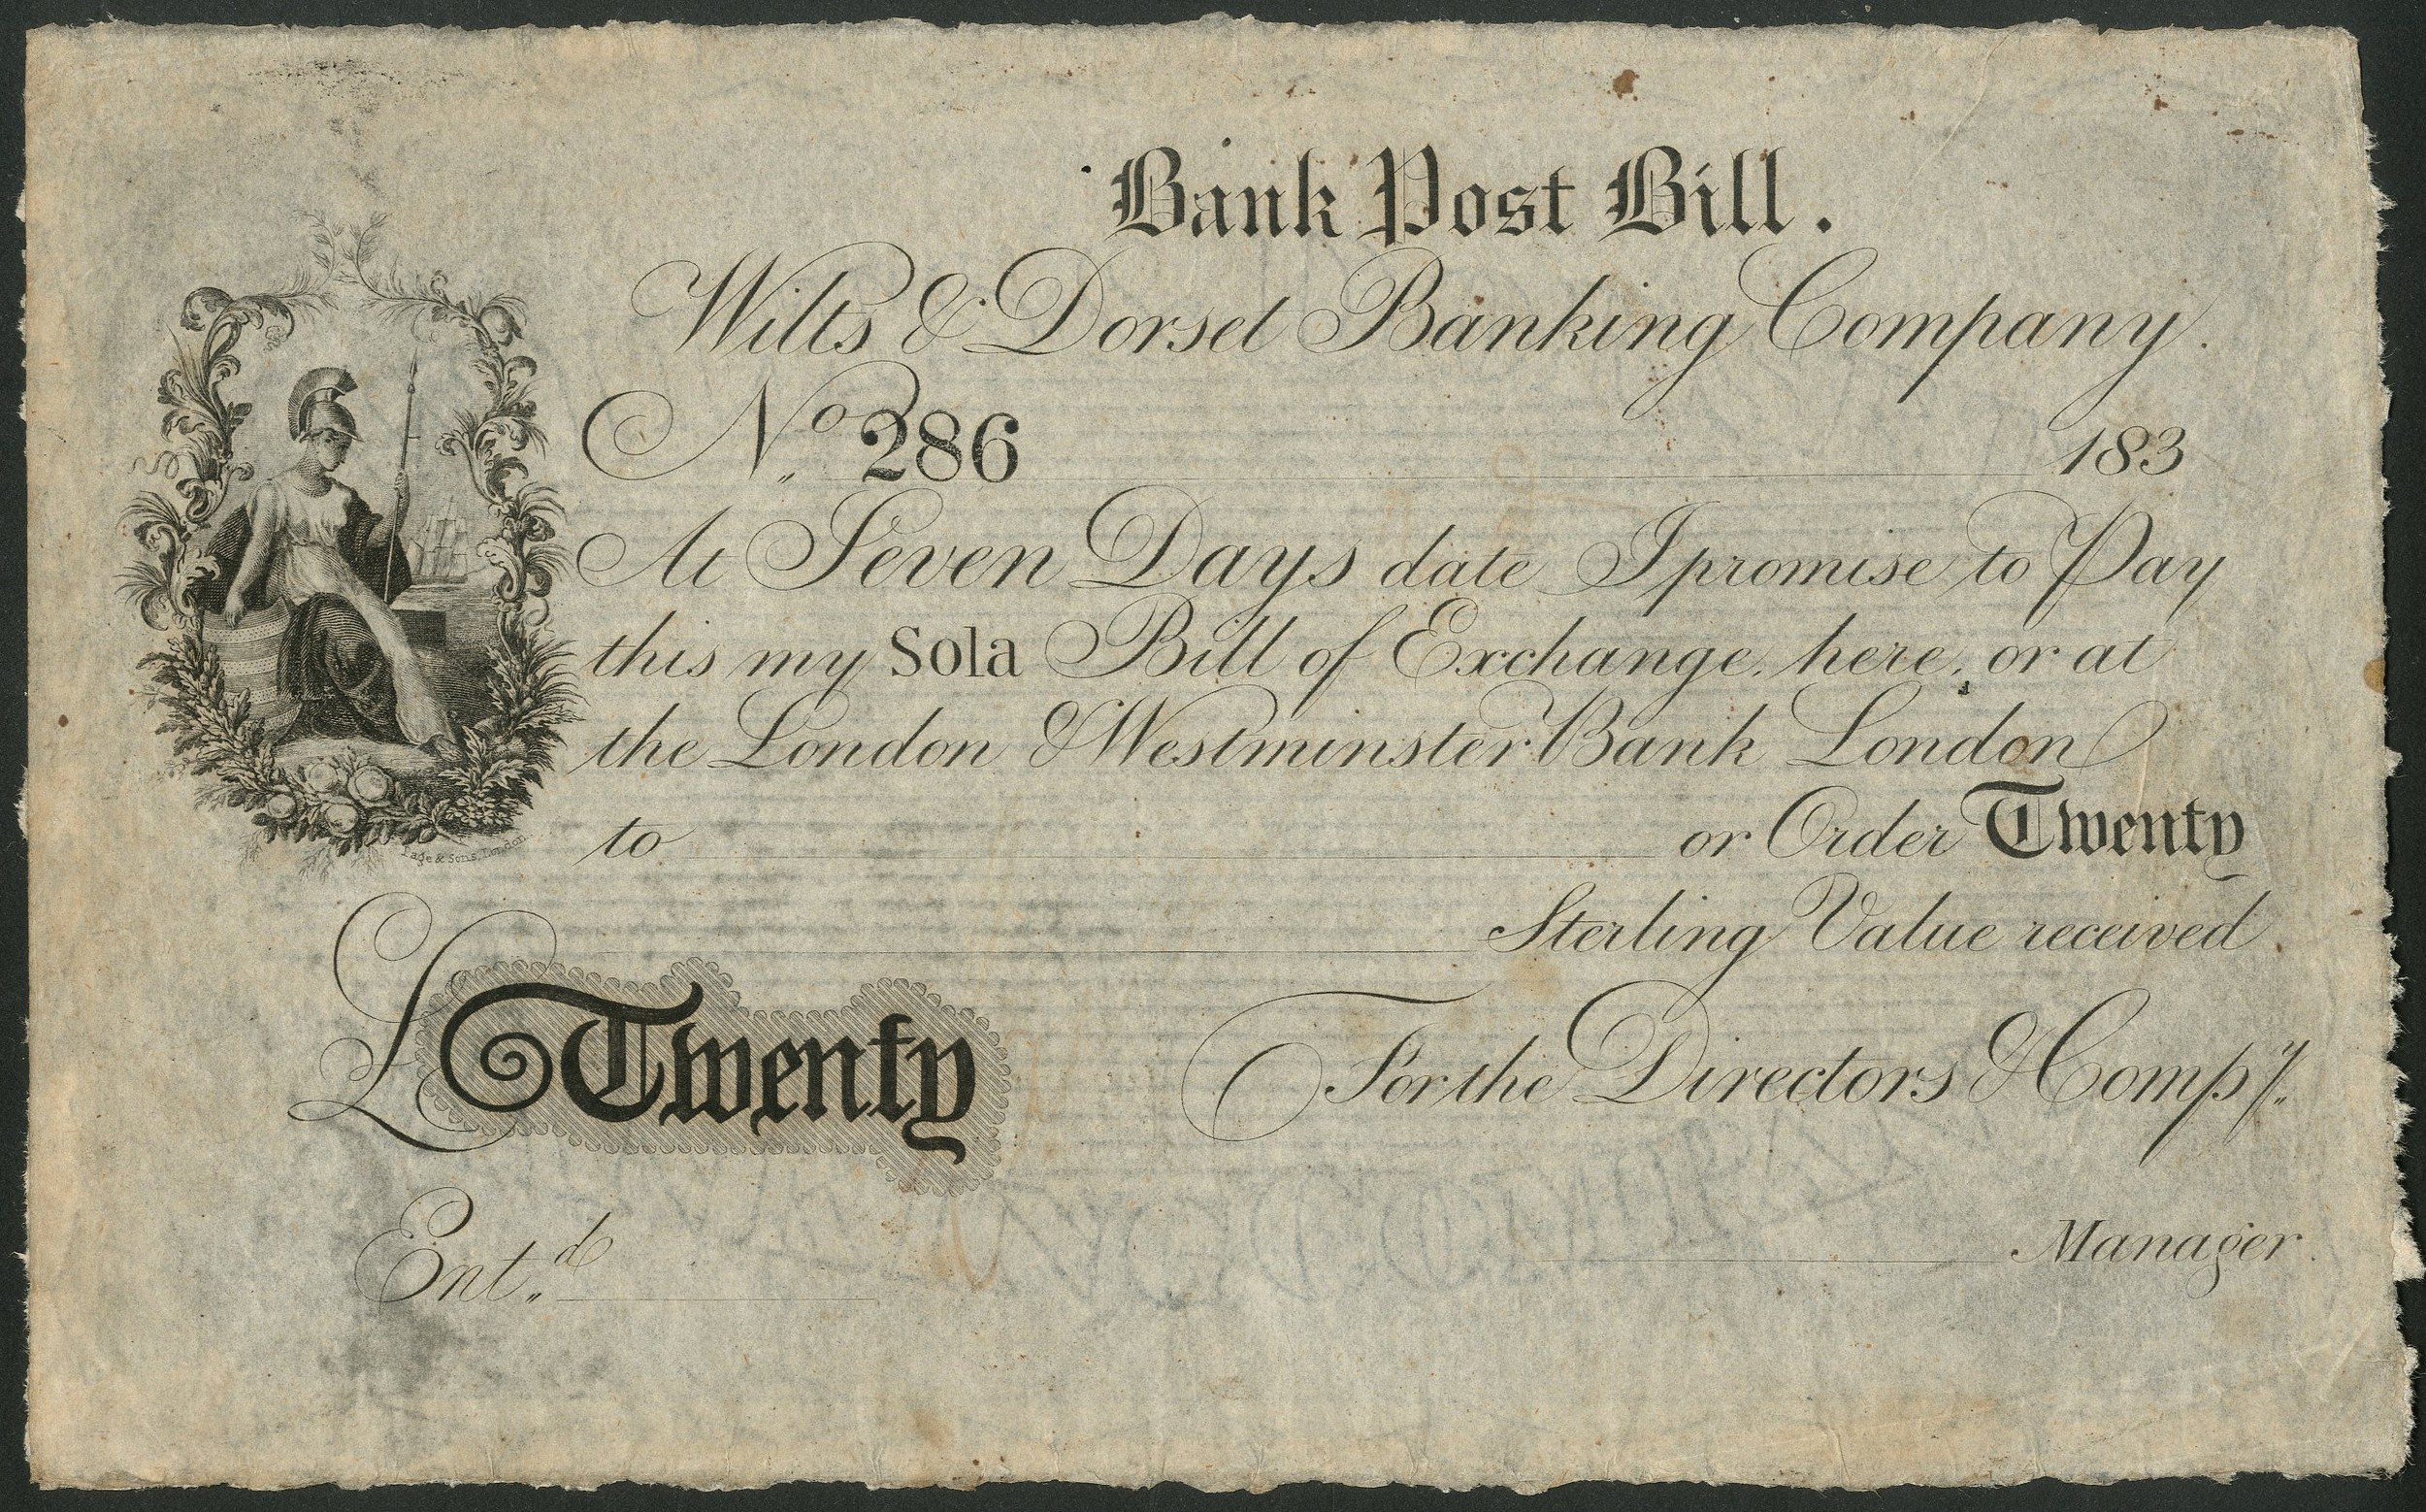 Bank Post Bill.
Wilts & Dorset Banking Company.
No 286 183
At Seven Days date I promise to Pay
this my Sola Bill of Exchange, here, or at
the London & Westminster Bank London
to or Order Twenty
Sterling Value received
£ Twenty For the Directors & Compy.
Entd. Manager
Page & Sons, London